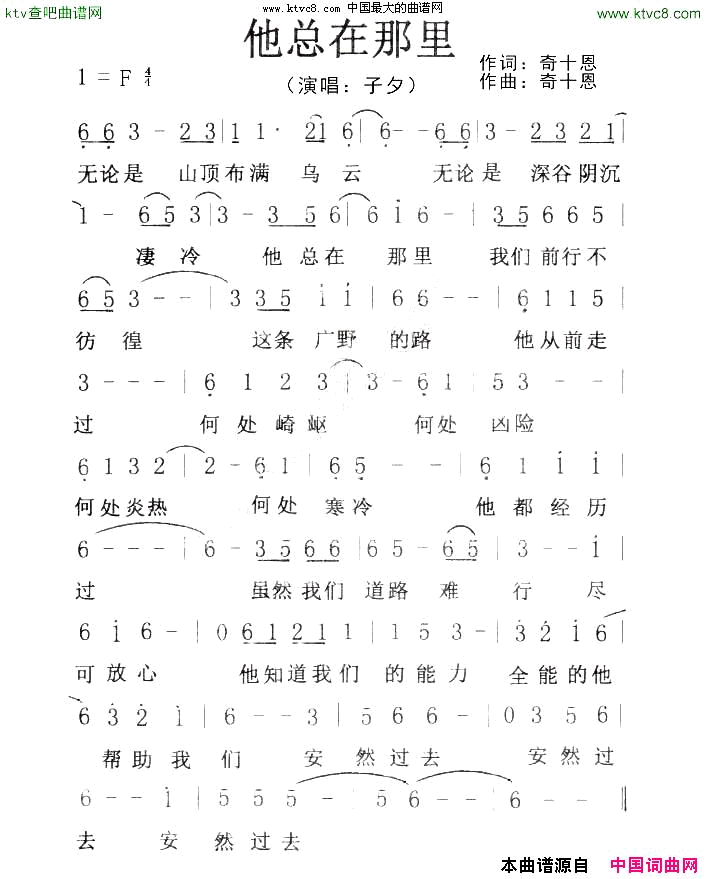 ktv查吧曲谱网
www.ktvc8.com 中国最大的曲谱网
ktv查吧曲谱网
www.ktvc8.com
他总在那里
1=F 4/4
（演唱：子夕）
作词：奇十恩
作曲：奇十恩
6 6 3 - 2 3 | 1 1 · 2 1 6 | 6 - - 6 6 | 3 - 2 3 2 1 |
无论是 山顶布满 乌云 无论是 深谷阴沉
1 - 6 5 3 | 3 - 3 5 6 | 6 i 6 - | 3 5 6 6 5 |
凄冷 他总在 那里 我们前行不
6 5 3 - - | 3 3 5 i i | 6 6 - - | 6 1 1 5 |
彷徨 这条广野 的路 他从前走
3 - - - | 6 1 2 3 | 3 - 6 1 | 5 3 - - |
过 何处崎岖 何处 凶险
6 1 3 2 | 2 - 6 1 | 6 5 - - | 6 1 i i |
何处炎热 何处 寒冷 他都经历
6 - - - | 6 - 3 5 6 6 | 6 5 - 6 5 | 3 - - i |
过 虽然我们 道路 难行 尽
6 i 6 - | 0 6 1 2 1 1 | 1 5 3 - | 3 2 i 6 |
可放心 他知道我们 的能力 全能的他
6 3 2 i | 6 - - 3 | 5 5 6 6 - | 0 3 5 6 |
帮助我们 安然过去 安然过
6 - - i | 5 5 5 - | 5 6 - - | 6 - - ‖
去 安然过去
本曲谱源自 中国词曲网